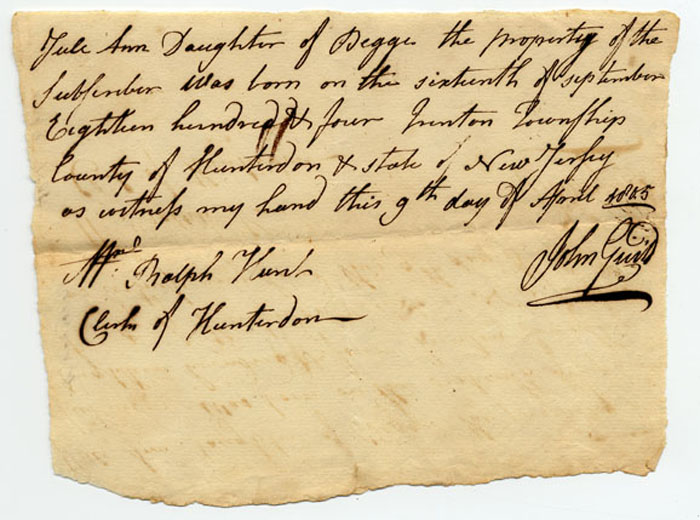 Jule Ann Daughter of Pegge the property of the
Subscriber was born on the sixteenth of september
Eighteen hundred & four Trenton Township
County of Hunterdon & state of New Jersey
as witness my hand this 9th day of April 1805
John Guild
Ralph Hunt
Clerk of Hunterdon